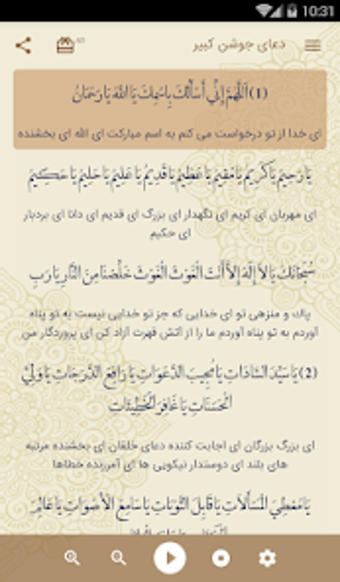 10:31
دعای جوشن کبیر
(1) اَللّهُمَّ اِنّي اَسْأَلُكَ بِاسْمِكَ يَا اَللّهُ يَا رَحْمَانُ
ای خدا از تو درخواست می کنم به اسم مبارکت ای الله ای بخشنده
يَا رَحِيمُ يَا كَرِيمُ يَا مُقِيمُ يَا عَظِيمُ يَا قَدِيمُ يَا عَلِيمُ يَا حَلِيمُ يَا حَكِيمُ
ای مهربان ای کریم ای نگهدار ای بزرگ ای قدیم ای دانا ای بردبار
ای حکیم
سُبْحَانَكَ يَا لاَ إِلَهَ إِلاَّ أَنْتَ الْغَوْثَ الْغَوْثَ خَلِّصْنَا مِنَ النَّارِ يَا رَبِّ
پاک و منزهی تو ای خدایی که جز تو خدایی نیست به تو پناه
آوردم به تو پناه آوردم ما را از آتش قهرت آزاد کن ای پروردگار من
(2) يَا سَيِّدَ السَّادَاتِ يَا مُجِيبَ الدَّعَوَاتِ يَا رَافِعَ الدَّرَجَاتِ يَا وَلِيَّ
الْحَسَنَاتِ يَا غَافِرَ الْخَطِيئَاتِ
ای بزرگ بزرگان ای اجابت کننده دعای خلقان ای بخشنده مرتبه
های بلند ای دوستدار نیکویی ها ای آمرزنده خطاها
يَا مُعْطِيَ الْمَسْأَلاَتِ يَا قَابِلَ التَّوْبَاتِ يَا سَامِعَ الْأَصْوَاتِ يَا عَالِمَ